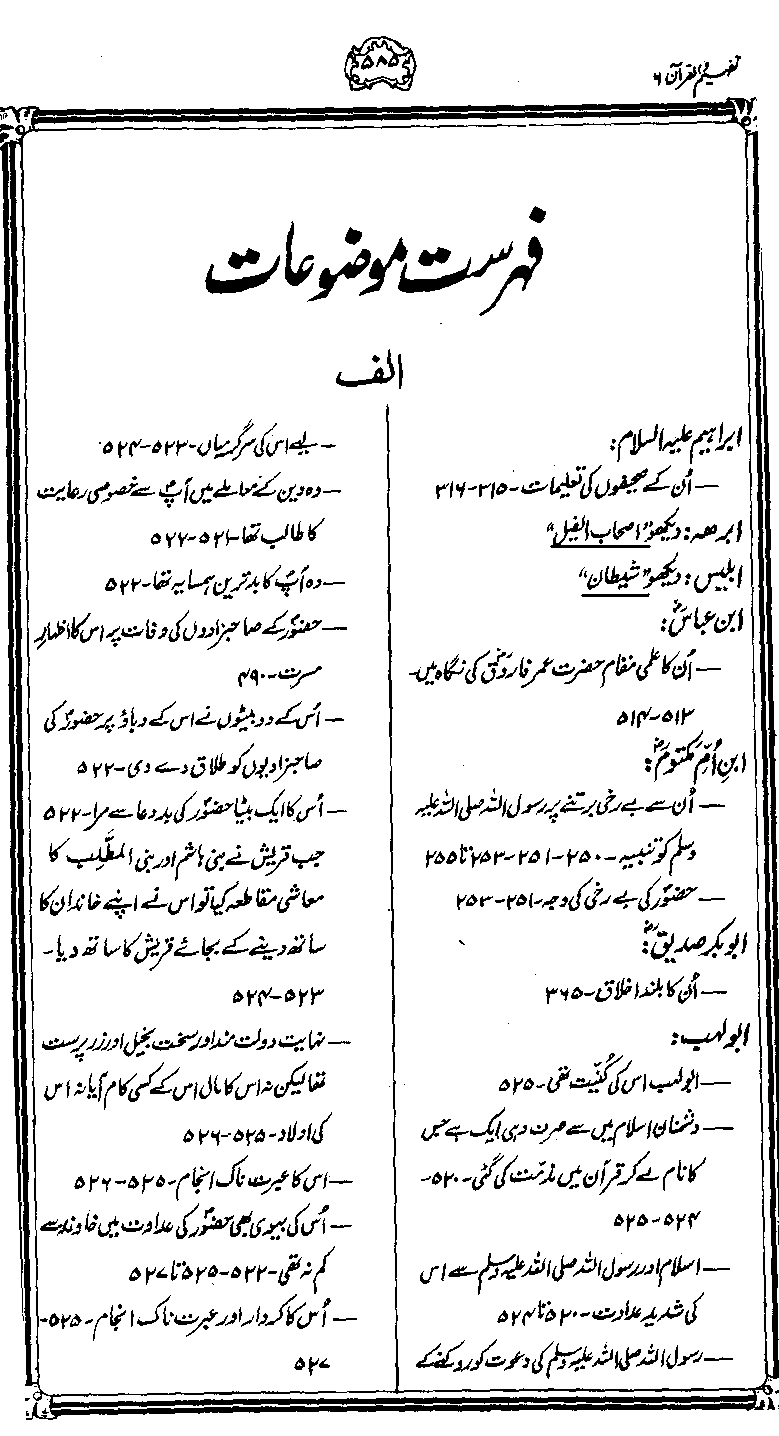 تفہیم القرآن ۶
۵۸۵
فہرست موضوعات
الف
ابراہیم علیہ السلام:
— اُن کے صحیفوں کی تعلیمات - ۳۱۵-۳۱۶
ابرھہ: دیکھو "اصحاب الفیل"
ابلیس: دیکھو "شیطان"
ابن عباسؓ:
— اُن کا علمی مقام حضرت عمر فاروقؓ کی نگاہ میں-
۵۱۳-۵۱۴
ابنِ اُمِّ مکتومؓ:
— اُن سے بے رخی برتنے پر رسول اللہ صلی اللہ علیہ
وسلم کو تنبیہ - ۲۵۰-۲۵۱-۲۵۳ تا ۲۵۵
— حضورؐ کی بے رخی کی وجہ - ۲۵۱-۲۵۳
ابوبکر صدیقؓ:
— اُن کا بلند اخلاق - ۳۶۵
ابولہب:
— ابولہب اس کی کُنیّت تھی - ۵۲۵
— دشمنان اسلام میں سے صرف وہی ایک ہے جس
کا نام لے کر قرآن میں مذمّت کی گئی - ۵۲۰-
۵۲۴-۵۲۵
— اسلام اور رسول اللہ صلی اللہ علیہ وسلم سے اس
کی شدید عداوت - ۵۲۰ تا ۵۲۴
— رسول اللہ صلی اللہ علیہ وسلم کی دعوت کو روکنے کے
— لیے اس کی سرگرمیاں - ۵۲۳-۵۲۴
— وہ دین کے معاملے میں آپؐ سے خصوصی رعایت
کا طالب تھا - ۵۲۱-۵۲۲
— وہ آپؐ کا بدترین ہمسایہ تھا - ۵۲۲
— حضورؐ کے صاحبزادوں کی وفات پر اس کا اظہارِ
مسرت - ۴۹۰
— اُس کے دو بیٹوں نے اس کے دباؤ پر حضورؐ کی
صاحبزادیوں کو طلاق دے دی - ۵۲۲
— اُس کا ایک بیٹا حضورؐ کی بددعا سے مرا - ۵۲۲
جب قریش نے بنی ہاشم اور بنی المطَّلِب کا
معاشی مقاطعہ کیا تو اس نے اپنے خاندان کا
ساتھ دینے کے بجائے قریش کا ساتھ دیا -
۵۲۳-۵۲۴
— نہایت دولت مند اور سخت بخیل اور زرپرست
تھا لیکن نہ اس کا مال اس کے کسی کام آیا نہ اس
کی اولاد - ۵۲۵-۵۲۶
— اس کا عبرت ناک انجام - ۵۲۵-۵۲۶
— اُس کی بیوی بھی حضورؐ کی عداوت میں خاوند سے
کم نہ تھی - ۵۲۲-۵۲۵ تا ۵۲۷
— اُس کا کردار اور عبرت ناک انجام - ۵۲۵-
۵۲۷